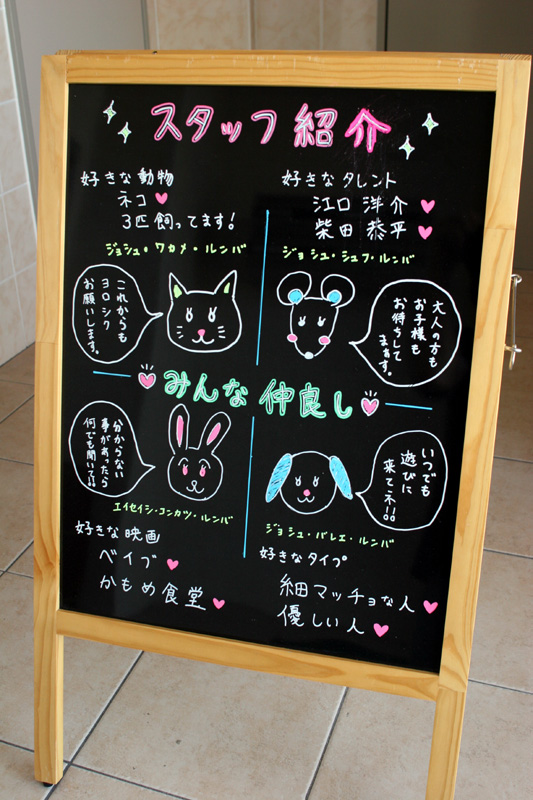 スタッフ紹介
好きな動物
ネコ
3匹飼ってます!
ジョシュ・ワカメ・ルンバ
これからも
ヨロシク
お願いします。
好きなタレント
江口洋介
柴田恭平
ジョシュ・シュフ・ルンバ
大人の方も
お子様も
お待ちして
まぁす。
みんな仲良し
分からない
事があったら
何でも聞いて!!
エイセイシ・コンカツ・ルンバ
好きな映画
ベイブ
かもめ食堂
いつでも
遊びに
来てネ!!
ジョシュ・バレエ・ルンバ
好きなタイプ
細マッチョな人
優しい人